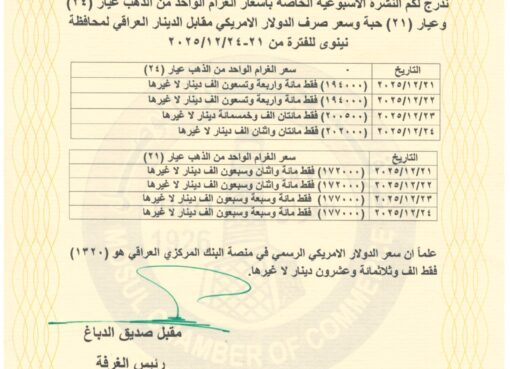 ندرج لكم النشرة الاسبوعية الخاصة باسعار الغرام الواحد من الذهب عيار (٢٤)
وعيار (٢١) حبة وسعر صرف الدولار الامريكي مقابل الدينار العراقي لمحافظة
نينوى للفترة من ٢١-٢٠٢٥/١٢/٢٤
التاريخ سعر الغرام الواحد من الذهب عيار (٢٤)
٢٠٢٥/١٢/٢١ (١٩٤٠٠٠) فقط مائة واربعة وتسعون الف دينار لا غيرها
٢٠٢٥/١٢/٢٢ (١٩٤٠٠٠) فقط مائة واربعة وتسعون الف دينار لا غيرها
٢٠٢٥/١٢/٢٣ (٢٠٠٥٠٠) فقط مائتان الف وخمسمائة دينار لا غيرها
٢٠٢٥/١٢/٢٤ (٢٠٢٠٠٠) فقط مائتان واثنان الف دينار لا غيرها
التاريخ سعر الغرام الواحد من الذهب عيار (٢١)
٢٠٢٥/١٢/٢١ (١٧٢٠٠٠) فقط مائة واثنان وسبعون الف دينار لا غيرها
٢٠٢٥/١٢/٢٢ (١٧٢٠٠٠) فقط مائة واثنان وسبعون الف دينار لا غيرها
٢٠٢٥/١٢/٢٣ (١٧٧٠٠٠) فقط مائة وسبعة وسبعون الف دينار لا غيرها
٢٠٢٥/١٢/٢٤ (١٧٧٠٠٠) فقط مائة وسبعة وسبعون الف دينار لا غيرها
علماً ان سعر الدولار الامريكي الرسمي في منصة البنك المركزي العراقي هو (١٣٢٠)
فقط الف وثلاثمائة وعشرون دينار لا غيرها.
مقبل صديق الدباغ
رئيس الغرفة